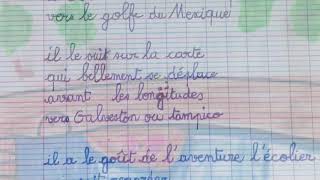 vers le golfe du Mexique
il le suit sur la carte
qui bellement se déplace
avant les longitudes
vers Galveston ou tampico
il a le goût de l'aventure l'écolier